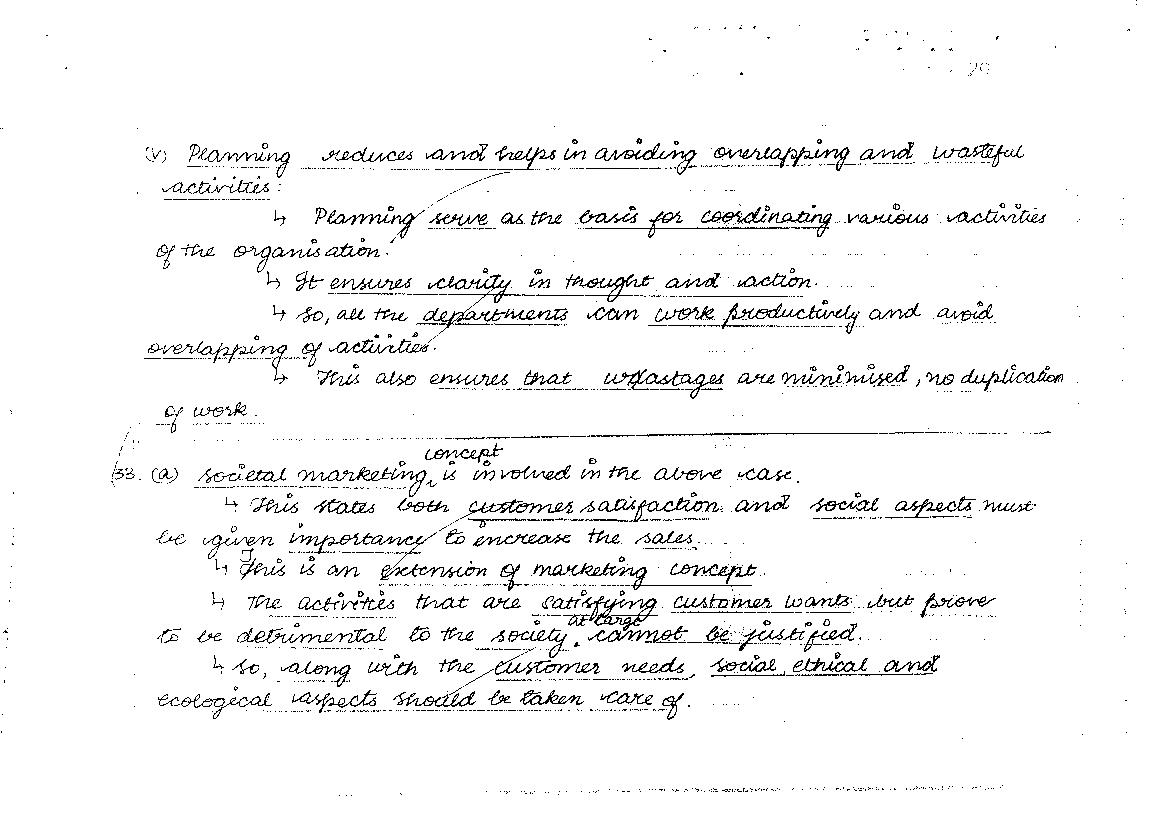 29
(v) Planning reduces and helps in avoiding overlapping and wasteful
activities:
↳ Planning serve as the basis for coordinating various activities
of the organisation.
↳ It ensures clarity in thought and action.
↳ So, all the departments can work productively and avoid
overlapping of activities.
↳ This also ensures that wastages are minimised, no duplication
of work.
concept
33. (a) Societal marketing ‸ is involved in the above case.
↳ This states both customer satisfaction and social aspects must
be given importance to increase the sales.
↳ This is an extension of marketing concept.
↳ The activities that are satisfying customer wants but prove
at large
to be detrimental to the society ‸ cannot be justified.
↳ So, along with the customer needs, social, ethical and
ecological aspects should be taken care of.